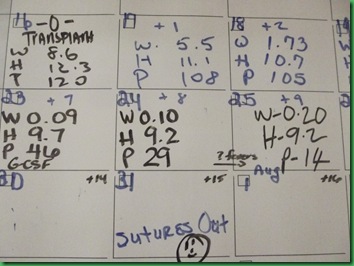 16 -0-
TRANSPLANT
W 8.6
H 12.3
T 120
17 +1
W. 5.5
H 11.1
P 108
18 +2
W 1.73
H 10.7
P 105
23 +7
W 0.09
H 9.7
P 46
GCSF
24 +8
W 0.10
H 9.2
P 29
25 +9
W-0.20
H-9.2
P-14
? fevers
30 +14
31 +15
SUTURES Out
Aug
1 +16